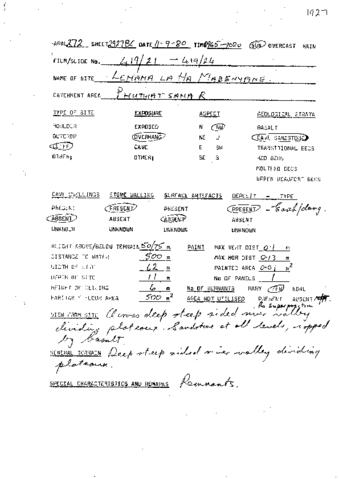 1927
ARAL 272 SHEET 2927BC DATE 11-9-80 TIME 0965-1020 SUN OVERCAST RAIN
FILM/SLIDE No. 419/21 - 419/24
NAME OF SITE LEHAHA LA HA MABENYANE.
CATCHMENT AREA PHUTHIATSANA R
TYPE OF SITE EXPOSURE ASPECT GEOLOGICAL STRATA
BOULDER EXPOSED N NW BASALT
OUTCROP OVERHANG NE W CAVE SANDSTONE
CLIFF CAVE E SW TRANSITIONAL BEDS
OTHER: OTHER: SE S RED BEDS
MOLTENO BEDS
UPPER BEAUFORT BEDS
CAVE DWELLINGS STONE WALLING SURFACE ARTEFACTS DEPOSIT - TYPE
PRESENT PRESENT PRESENT PRESENT - Earth/dung.
ABSENT ABSENT ABSENT ABSENT
UNKNOWN UNKNOWN UNKNOWN
HEIGHT ABOVE/BELOW TERRAIN 50/75 m PAINT MAX VERT DIST 0.1 m
DISTANCE TO WATER 500 m MAX HOR DIST 0.13 m
WIDTH OF SITE 62 m PAINTED AREA 0.01 m²
DEPTH OF SITE 11 m No OF PANELS 1
HEIGHT OF CEILING 6 m No OF REMNANTS MANY FEW NONE
HABITABLE FLOOR AREA 500 m² AREA NOT UTILISED PRESENT ABSENT
No Superposition
VIEW FROM SITE Across deep steep sided river valley
dividing plateaux. Sandstone at all levels, capped
by basalt
GENERAL TERRAIN Deep steep sided river valley dividing
plateaux.
SPECIAL CHARACTERISTICS AND REMARKS Remnants.